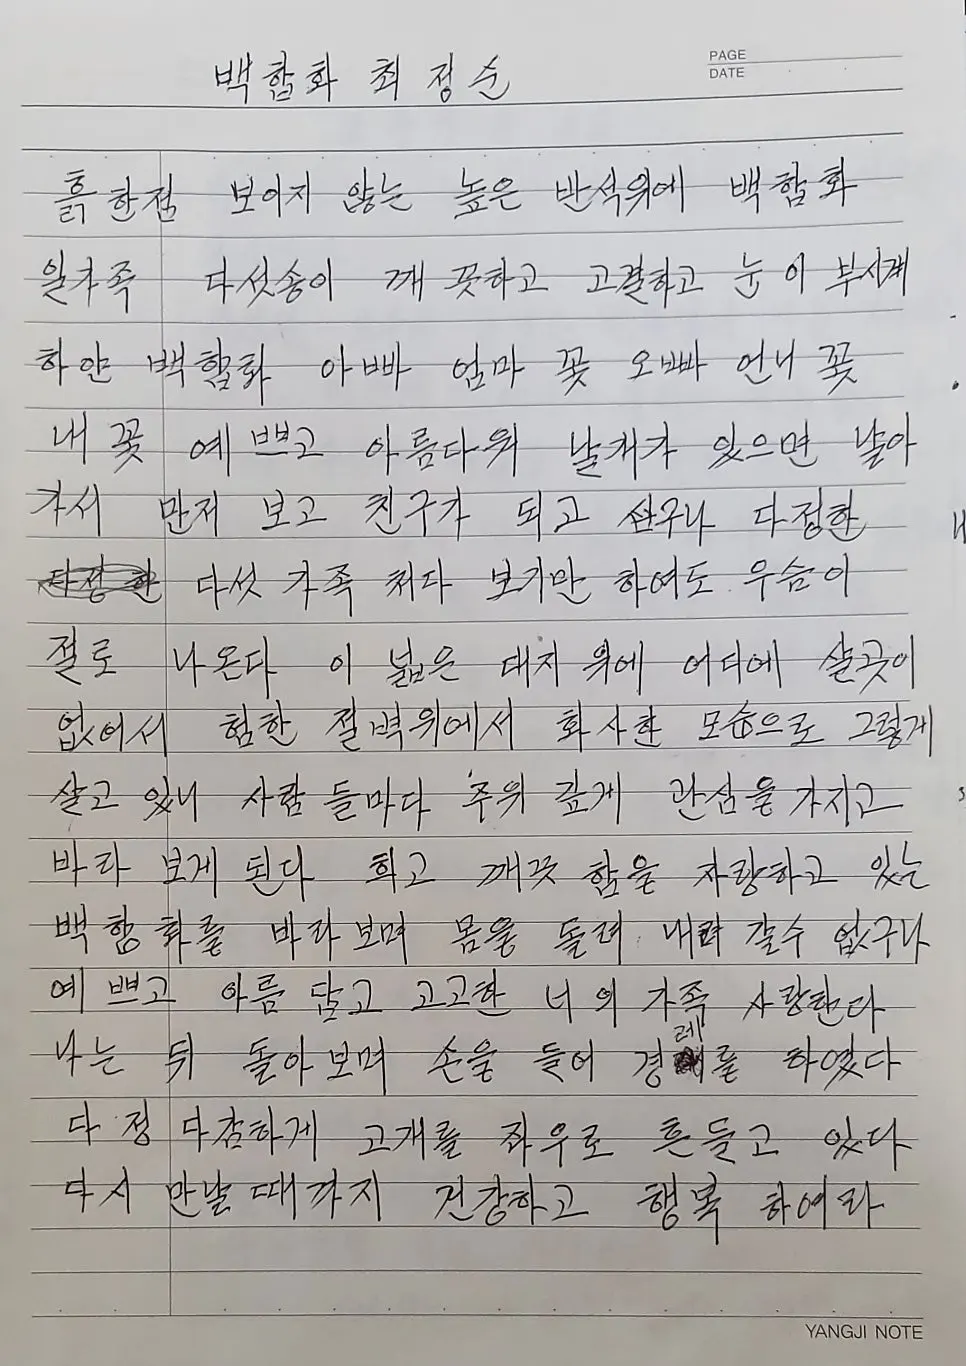 백합화 최정순
PAGE
DATE
흙한점 보이지 않는 높은 반석위에 백합화
일가족 다섯송이 깨끗하고 고결하고 눈이 부시게
하얀 백합화 아빠 엄마 꽃 오빠 언니 꽃
내 꽃 예쁘고 아름다워 날개가 있으면 날아
가서 만저 보고 친구가 되고 싶구나 다정한
다섯 가족 처다 보기만 하여도 우슴이
절로 나온다 이 넓은 대지 위에 어디에 살곳이
없어서 험한 절벽위에서 화사한 모습으로 그렇게
살고 있니 사람들마다 주위 깊게 관심을 가지고
바라 보게 된다 희고 깨끗 함을 자랑하고 있는
백합화를 바라보며 몸을 돌려 내려 갈수 없구나
예쁘고 아름 답고 고고한 너의 가족 사랑한다
나는 뒤 돌아보며 손을 들어 경례를 하였다
다정 다감하게 고개를 좌우로 흔들고 있다
다시 만날때까지 건강하고 행복 하여라
YANGJI NOTE